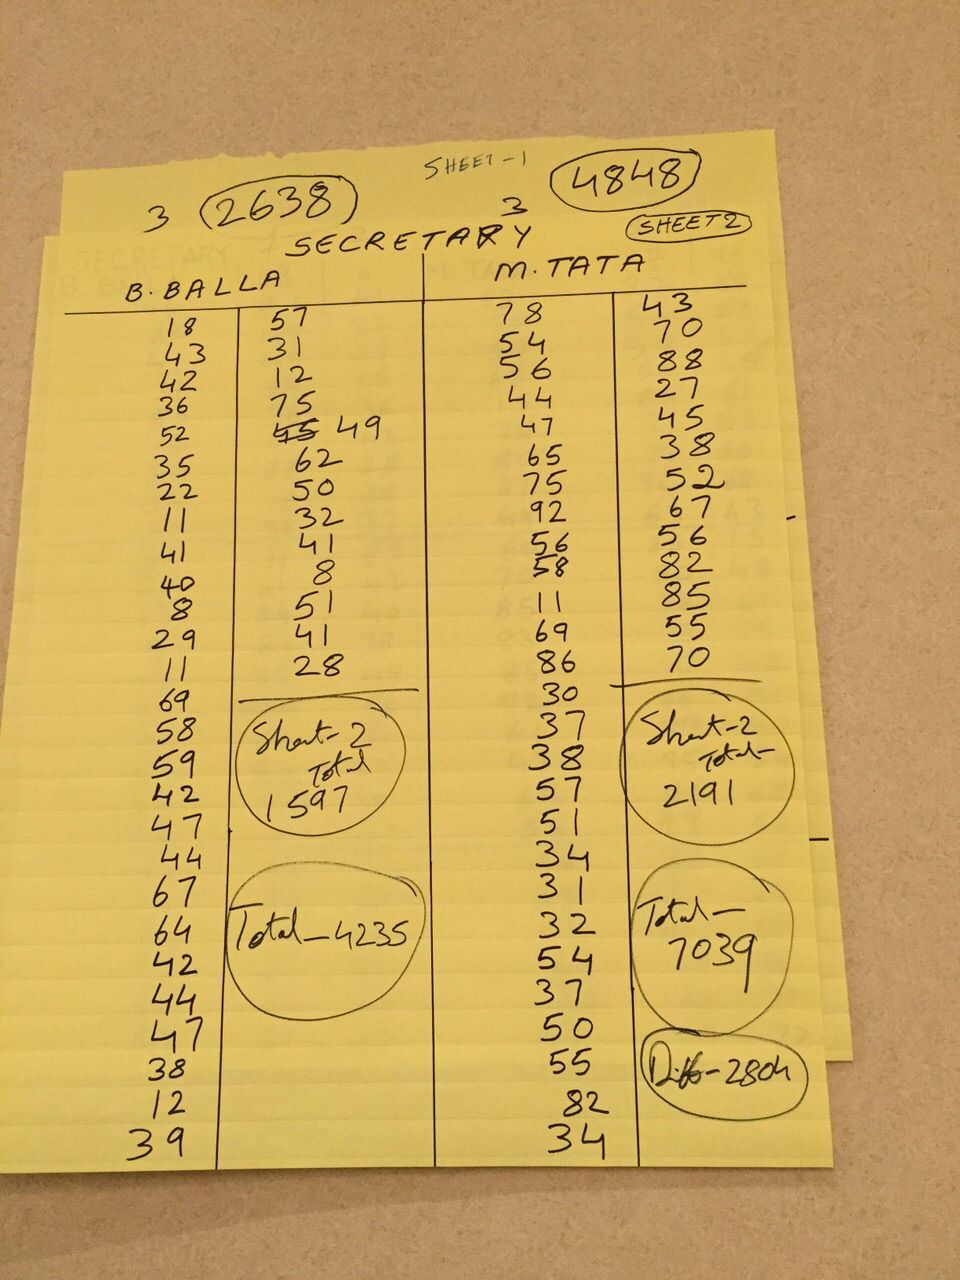 SHEET-1
3 2638 3 4848
SECRETARY SHEET 2
B. BALLA M. TATA
18 57 78 43
43 31 54 70
42 12 56 88
36 75 44 27
52 45 49 47 45
35 62 65 38
22 50 75 52
11 32 92 67
41 41 56 56
40 8 58 82
8 51 11 85
29 41 69 55
11 28 86 70
69 30
58 Sheet-2 37 Sheet-2
59 Total 38 Total-
42 1597 57 2191
47 51
44 34
67 31
64 Total-4235 32 Total-
42 54 7039
44 37
47 50
38 55 Diff-2804
12 82
39 34